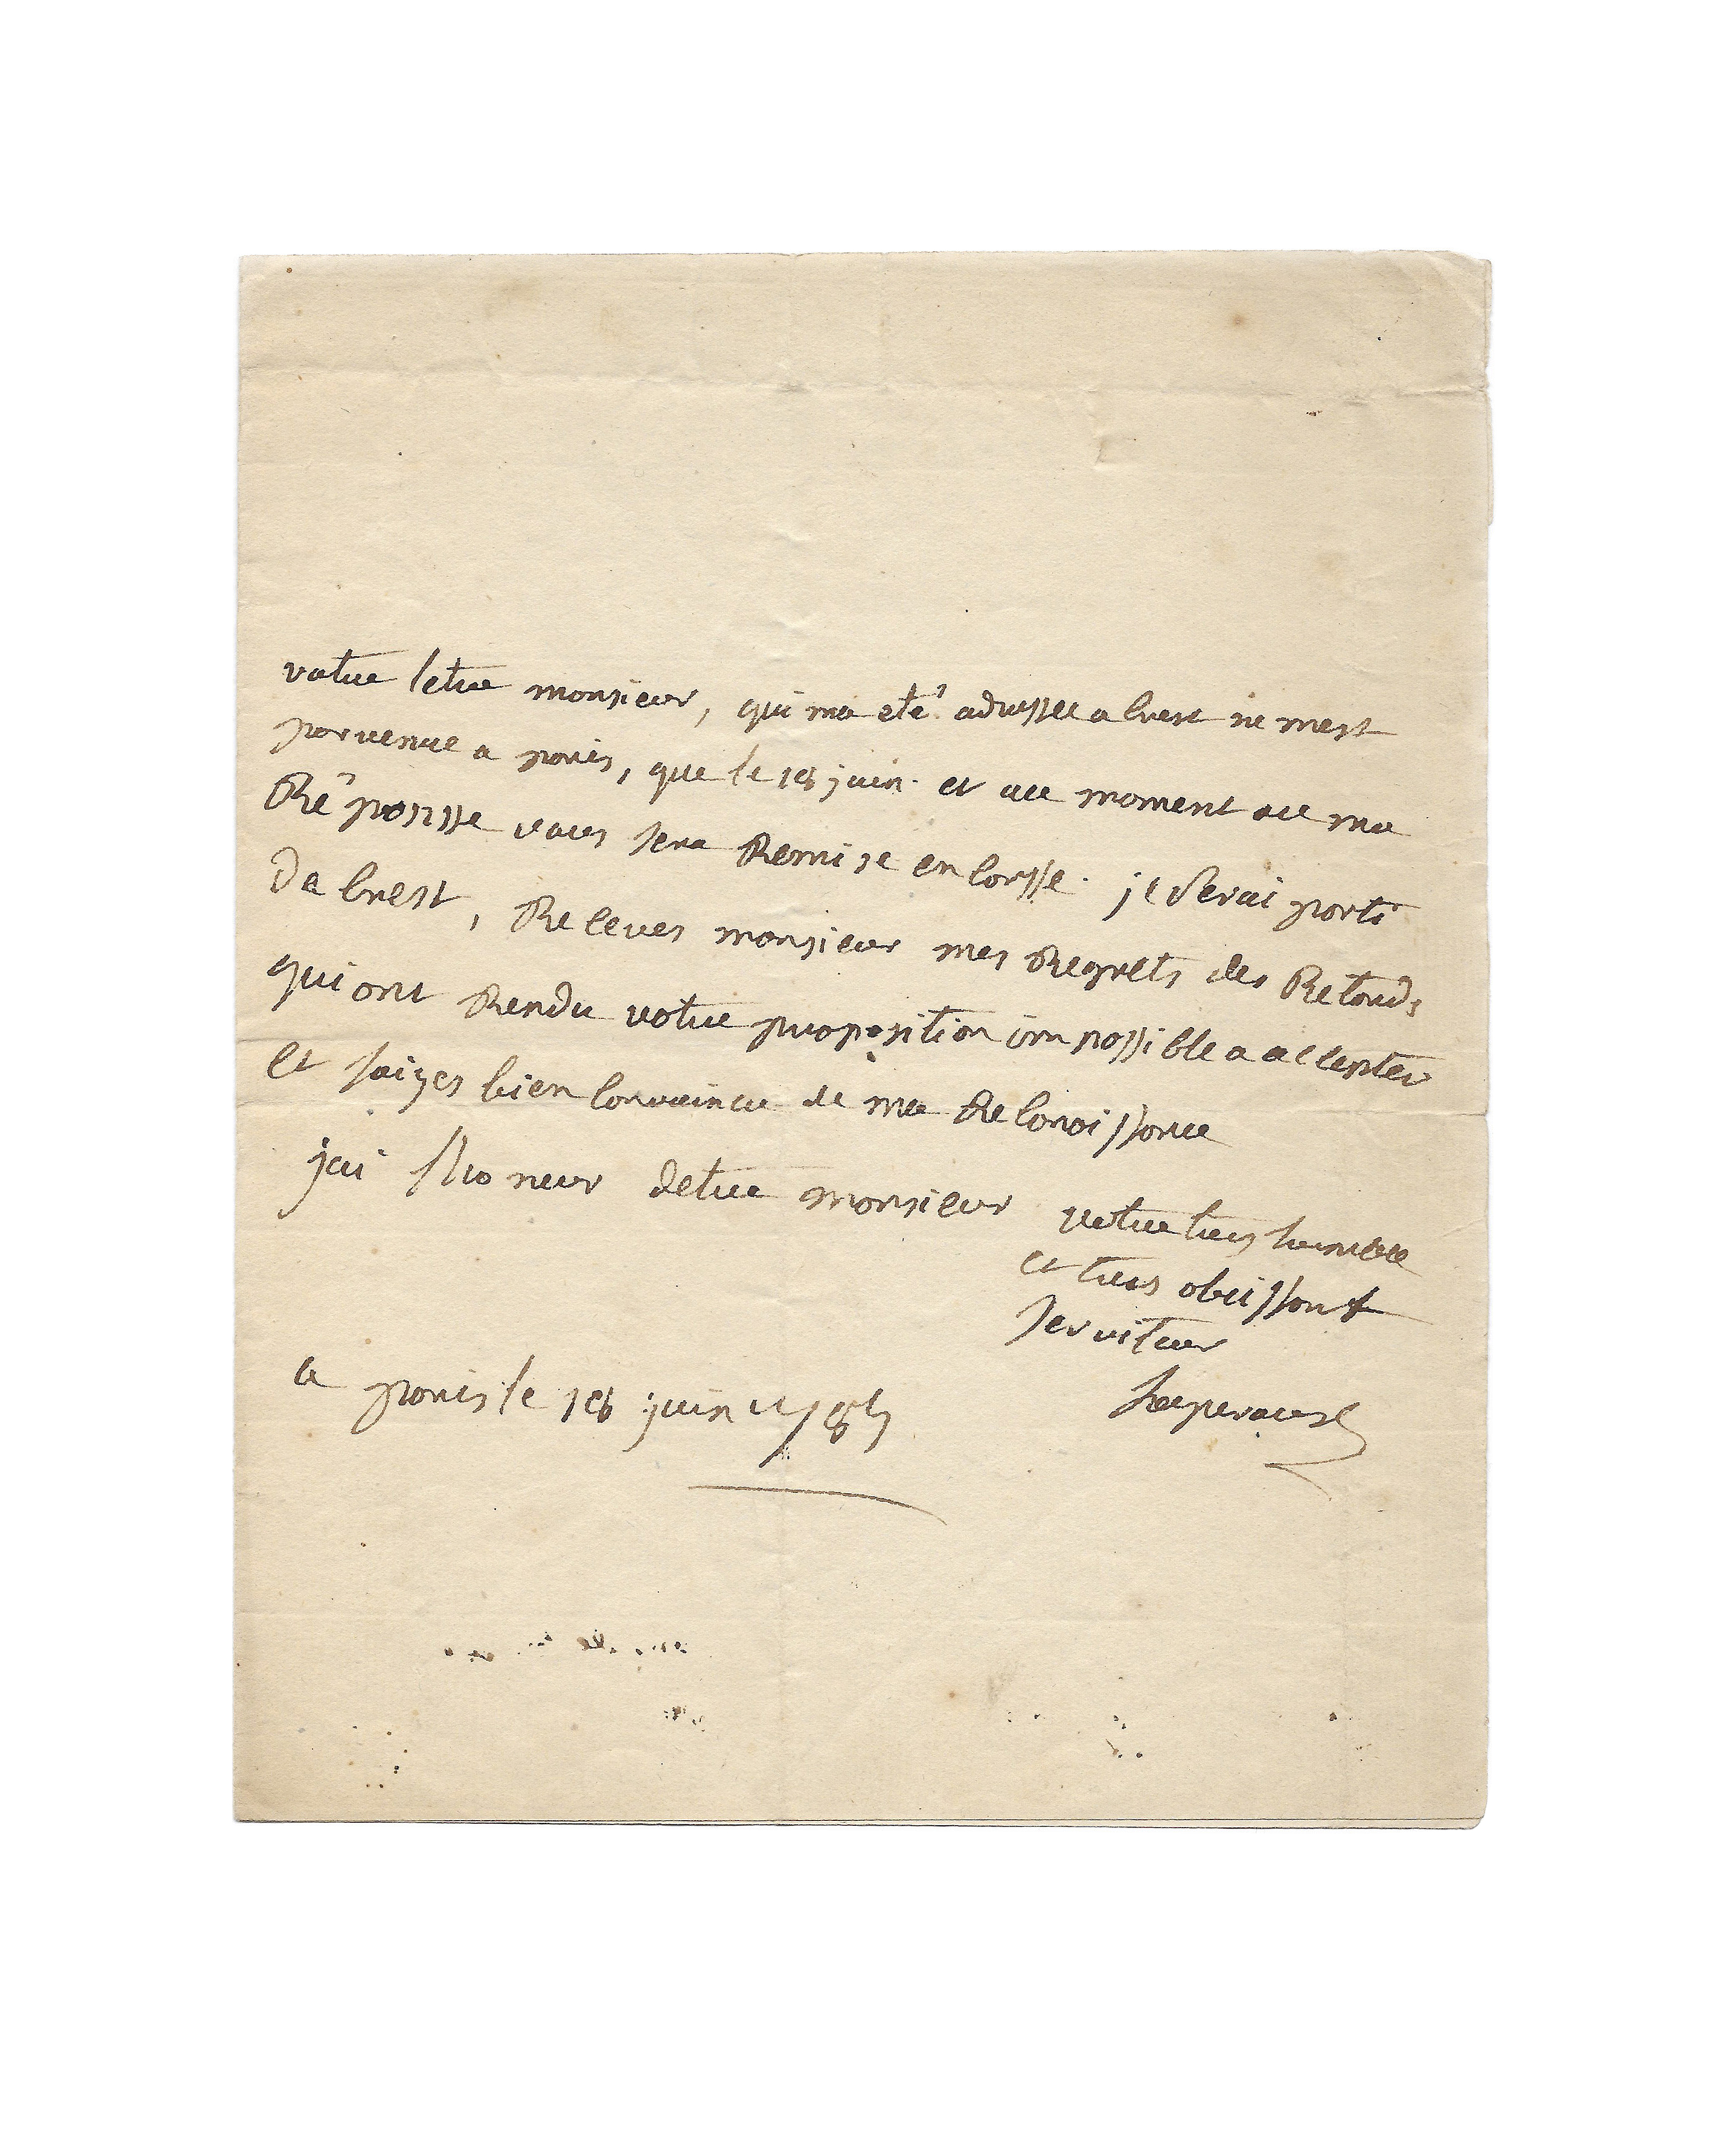 votre letre monsieur, qui ma eté adressee a brest ne mest
parvenue a paris, que le 18 juin. et au moment ou ma
Réponsse vous sera Remise en corsse. je serai parti
de brest, Receves monsieur mes Regrets des Retards
qui ont Rendu votre proposition impossible a accepter
et soiyes bien convaincu de ma Reconoissance
jai lhoneur detre monsieur votre tres humble
et tres obeissant
serviteur
a paris le 18 juin 1785
Laperouse